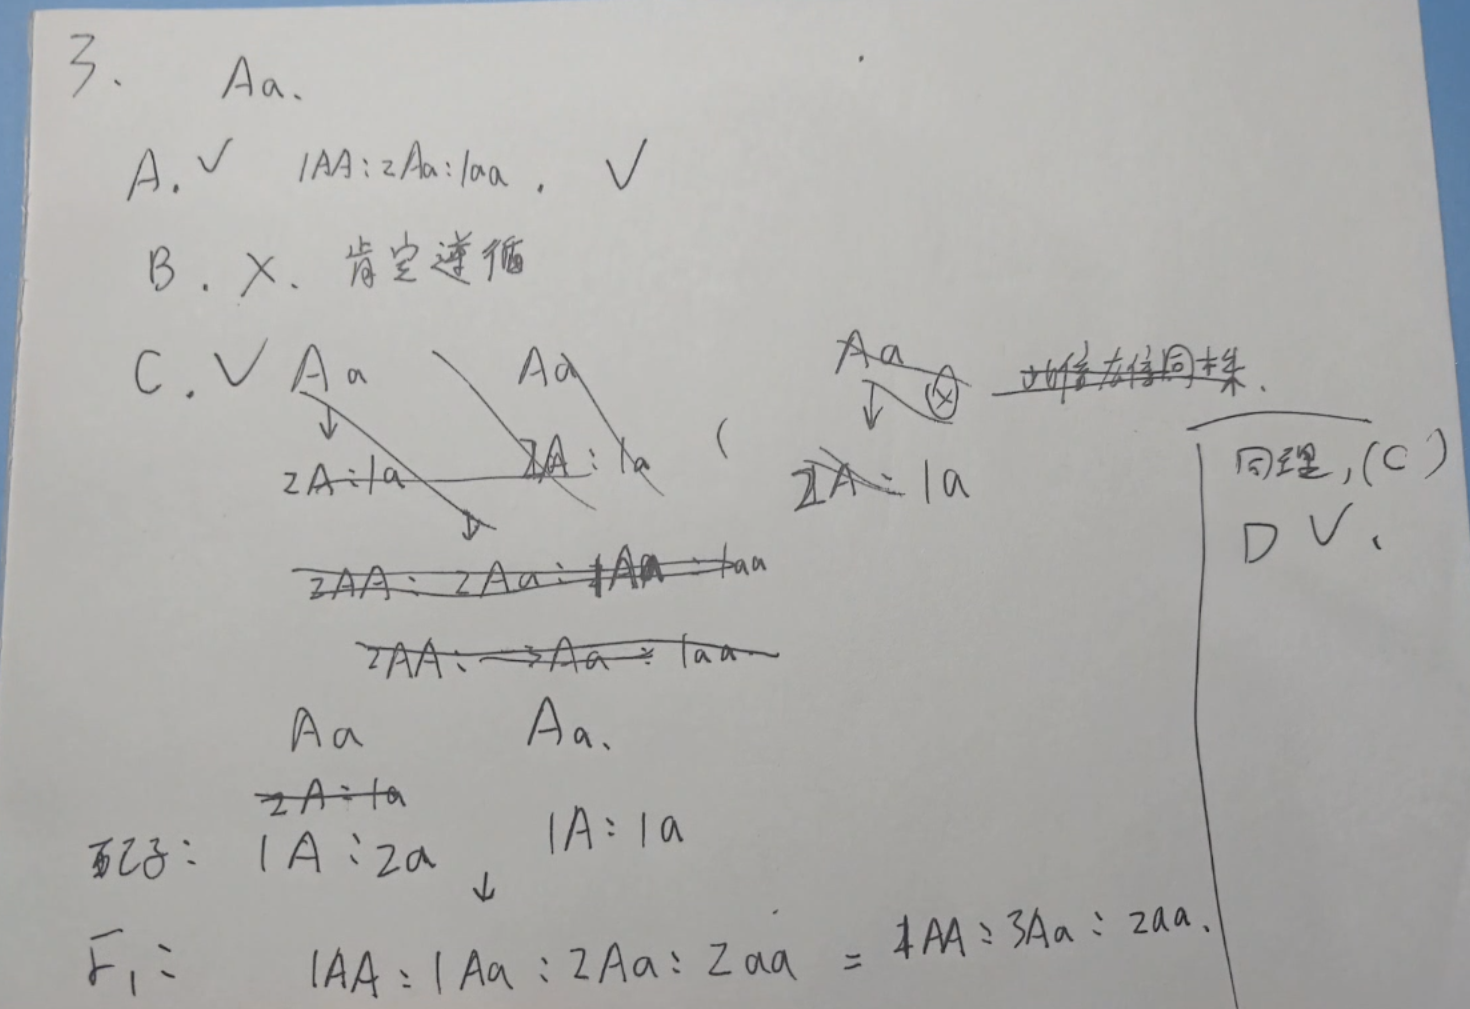 3. Aa.
A. ✓ 1AA:2Aa:1aa. ✓
B. ×. 肯定遵循
C. ✓ Aa Aa Aa ⊗
↓ ↓
2A:1a 2A:1a ( 2A:1a
↓
2AA:2Aa:1Aa:1aa
2AA:3Aa:1aa
Aa Aa.
2A:1a
配子: 1A:2a 1A:1a
↓
F₁: 1AA:1Aa:2Aa:2aa = 1AA:3Aa:2aa.
同理,(C)
D ✓.